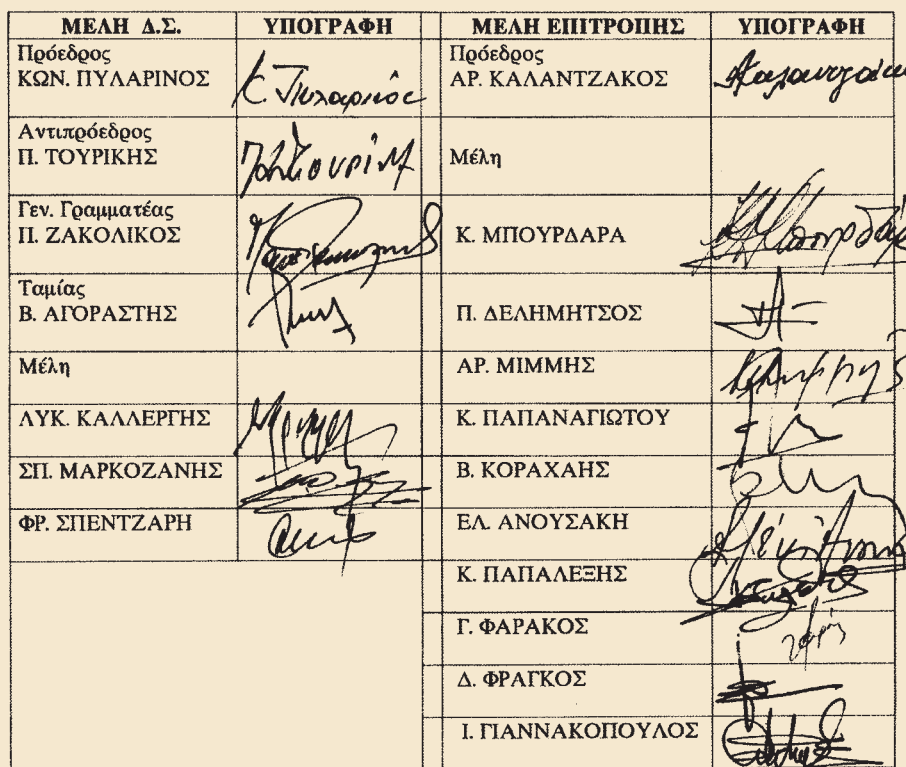 ΜΕΛΗ Δ.Σ. ΥΠΟΓΡΑΦΗ ΜΕΛΗ ΕΠΙΤΡΟΠΗΣ ΥΠΟΓΡΑΦΗ
Πρόεδρος
ΚΩΝ. ΠΥΛΑΡΙΝΟΣ
Κ. Πυλαρινός
Πρόεδρος
ΑΡ. ΚΑΛΑΝΤΖΑΚΟΣ
Αντιπρόεδρος
Π. ΤΟΥΡΙΚΗΣ
Μέλη
Γεν. Γραμματέας
Π. ΖΑΚΟΛΙΚΟΣ
Κ. ΜΠΟΥΡΔΑΡΑ
Ταμίας
Β. ΑΓΟΡΑΣΤΗΣ
Π. ΔΕΛΗΜΗΤΣΟΣ
Μέλη
ΑΡ. ΜΙΜΜΗΣ
ΛΥΚ. ΚΑΛΛΕΡΓΗΣ
Κ. ΠΑΠΑΝΑΓΙΩΤΟΥ
ΣΠ. ΜΑΡΚΟΖΑΝΗΣ
Β. ΚΟΡΑΧΑΗΣ
ΦΡ. ΣΠΕΝΤΖΑΡΗ
ΕΛ. ΑΝΟΥΣΑΚΗ
Κ. ΠΑΠΑΛΕΞΗΣ
Γ. ΦΑΡΑΚΟΣ
Δ. ΦΡΑΓΚΟΣ
Ι. ΓΙΑΝΝΑΚΟΠΟΥΛΟΣ